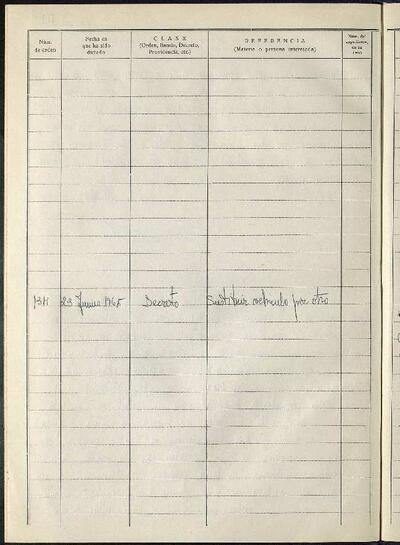 Núm. de orden
Fecha en que ha sido dictado
CLASE
(Orden, Bando, Decreto, Providencia, etc.)
REFERENCIA
(Materia o persona interesada)
Núm. del
23 Junio 1965 Decreto Sustituir vehículo por otro